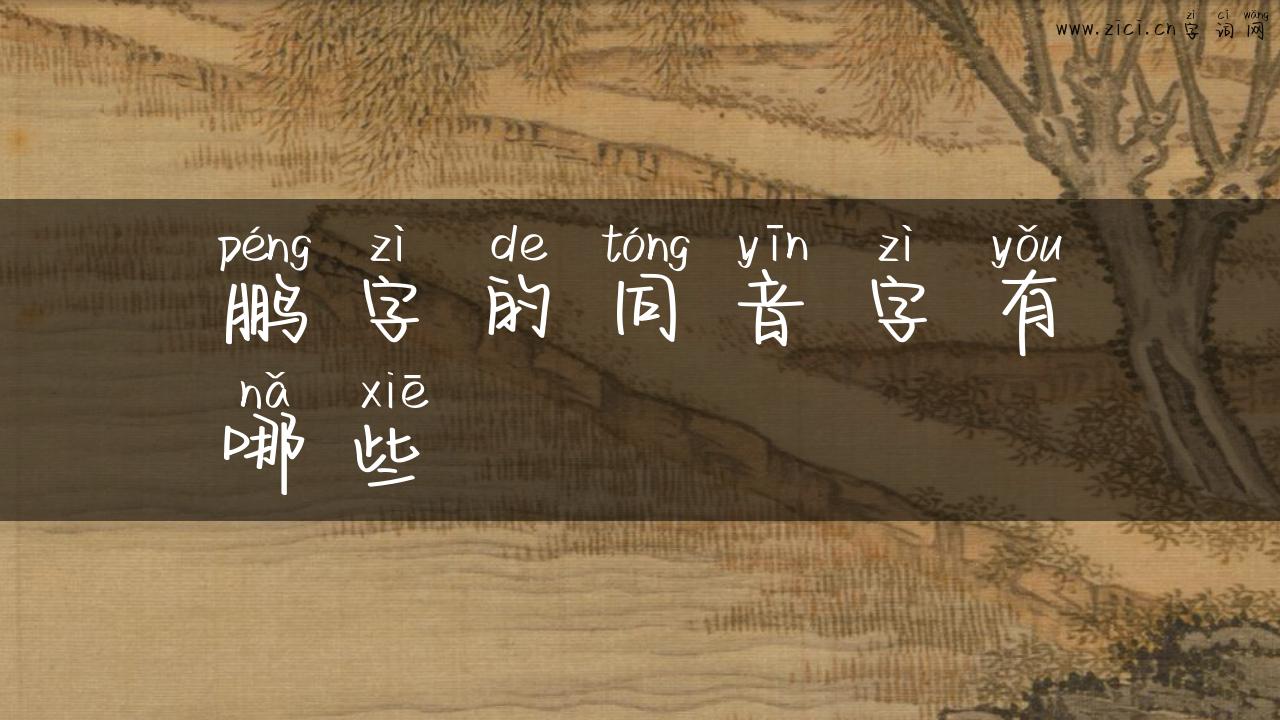 zì cí wǎng
www.zici.cn字词网
péng zì de tóng yīn zì yǒu
鹏字的同音字有
nǎ xiē
哪些